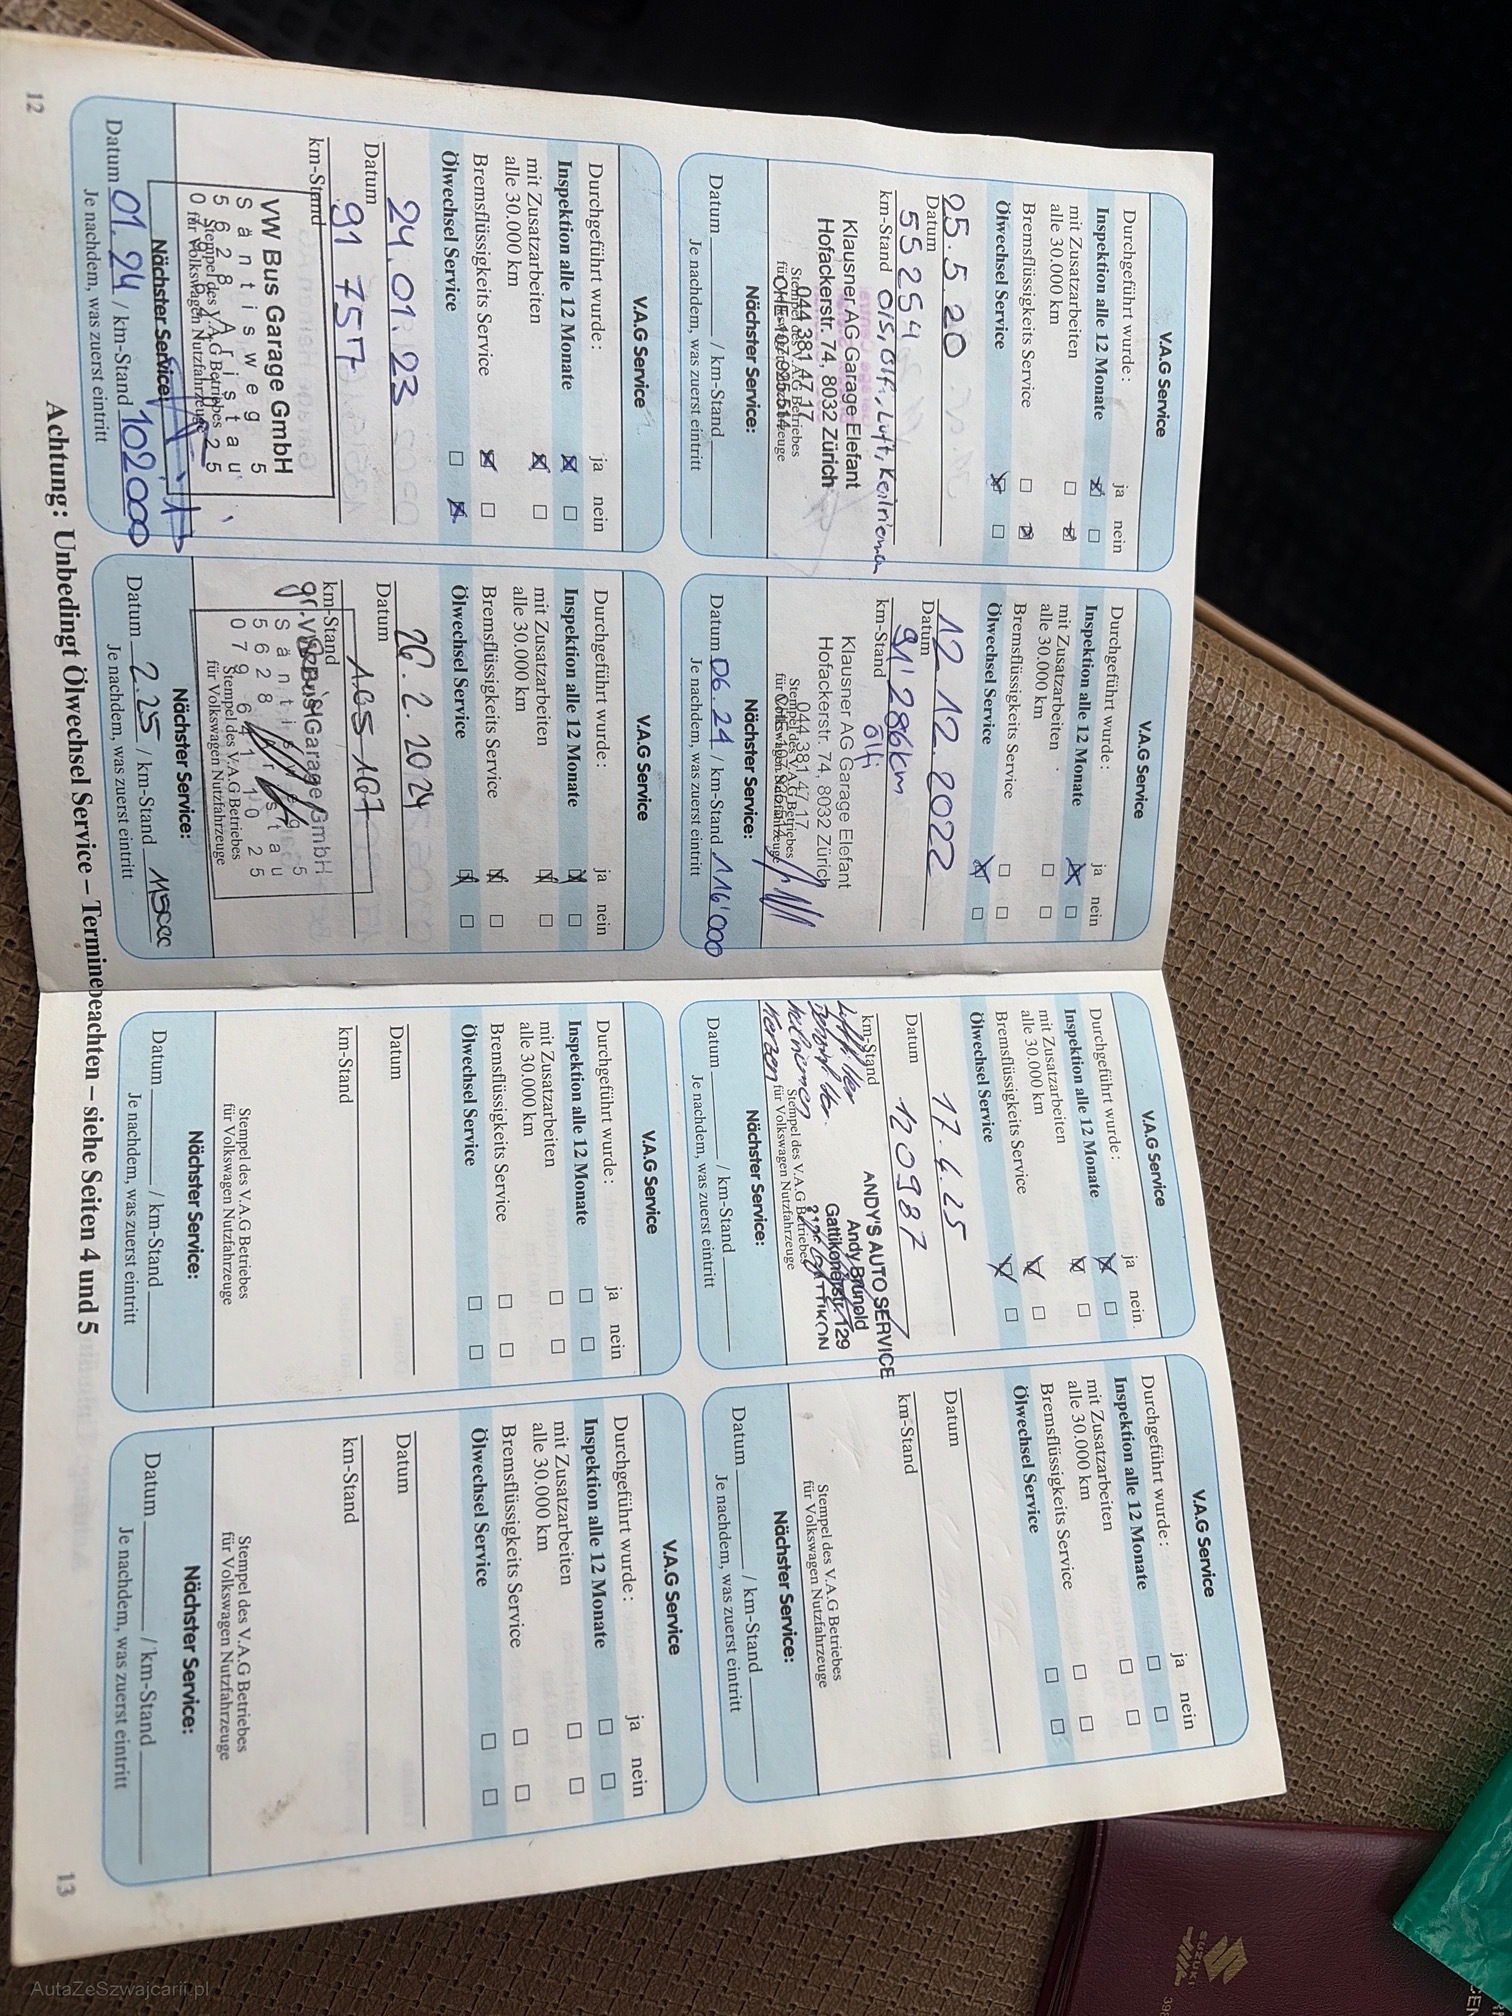 V.A.G Service
Durchgeführt wurde: ja nein
Inspektion alle 12 Monate
mit Zusatzarbeiten
alle 30.000 km
Bremsflüssigkeits Service
Ölwechsel Service
25.5.20
Datum
55254
km-Stand Öls, Ölf., Luft, Keilriemen
Klausner AG Garage Elefant
Hofackerstr. 74, 8032 Zürich
044 381 47 17
Stempel des V.A.G Betriebes
für Volkswagen Nutzfahrzeuge
Nächster Service:
Datum / km-Stand
Je nachdem, was zuerst eintritt
V.A.G Service
Durchgeführt wurde: ja nein
Inspektion alle 12 Monate
mit Zusatzarbeiten
alle 30.000 km
Bremsflüssigkeits Service
Ölwechsel Service
12.12.2022
Datum
91'286km
km-Stand Ölfi
Klausner AG Garage Elefant
Hofackerstr. 74, 8032 Zürich
044 381 47 17
Stempel des V.A.G Betriebes
für Volkswagen Nutzfahrzeuge
Nächster Service:
Datum 06.24 / km-Stand 116'000
Je nachdem, was zuerst eintritt
V.A.G Service
Durchgeführt wurde: ja nein
Inspektion alle 12 Monate
mit Zusatzarbeiten
alle 30.000 km
Bremsflüssigkeits Service
Ölwechsel Service
24.01.23
Datum
91757
km-Stand
VW Bus Garage GmbH
Säntisweg 5
5628 Aristau
Stempel des V.A.G Betriebes
für Volkswagen Nutzfahrzeuge
Nächster Service:
Datum 01.24 / km-Stand 102000
Je nachdem, was zuerst eintritt
V.A.G Service
Durchgeführt wurde: ja nein
Inspektion alle 12 Monate
mit Zusatzarbeiten
alle 30.000 km
Bremsflüssigkeits Service
Ölwechsel Service
26.2.2024
Datum
105 167
km-Stand
VW Bus Garage GmbH
Säntisweg 5
5628 Aristau
079 641 10 25
Stempel des V.A.G Betriebes
für Volkswagen Nutzfahrzeuge
Nächster Service:
Datum 2.25 / km-Stand 115000
Je nachdem, was zuerst eintritt
12
V.A.G Service
Durchgeführt wurde: ja nein
Inspektion alle 12 Monate
mit Zusatzarbeiten
alle 30.000 km
Bremsflüssigkeits Service
Ölwechsel Service
17.4.25
Datum
120987
km-Stand
Luftfilter
Keilriemen
Kerzen
ANDY'S AUTO SERVICE
Andy Brunold
Gattikonerstr. 129
GATTIKON
Stempel des V.A.G Betriebes
für Volkswagen Nutzfahrzeuge
Nächster Service:
Datum / km-Stand
Je nachdem, was zuerst eintritt
V.A.G Service
Durchgeführt wurde: ja nein
Inspektion alle 12 Monate
mit Zusatzarbeiten
alle 30.000 km
Bremsflüssigkeits Service
Ölwechsel Service
Datum
km-Stand
Stempel des V.A.G Betriebes
für Volkswagen Nutzfahrzeuge
Nächster Service:
Datum / km-Stand
Je nachdem, was zuerst eintritt
V.A.G Service
Durchgeführt wurde: ja nein
Inspektion alle 12 Monate
mit Zusatzarbeiten
alle 30.000 km
Bremsflüssigkeits Service
Ölwechsel Service
Datum
km-Stand
Stempel des V.A.G Betriebes
für Volkswagen Nutzfahrzeuge
Nächster Service:
Datum / km-Stand
Je nachdem, was zuerst eintritt
V.A.G Service
Durchgeführt wurde: ja nein
Inspektion alle 12 Monate
mit Zusatzarbeiten
alle 30.000 km
Bremsflüssigkeits Service
Ölwechsel Service
Datum
km-Stand
Stempel des V.A.G Betriebes
für Volkswagen Nutzfahrzeuge
Nächster Service:
Datum / km-Stand
Je nachdem, was zuerst eintritt
Achtung: Unbedingt Ölwechsel Service – Termine beachten – siehe Seiten 4 und 5
13
SUZUKI
AutaZeSzwajcarii.pl